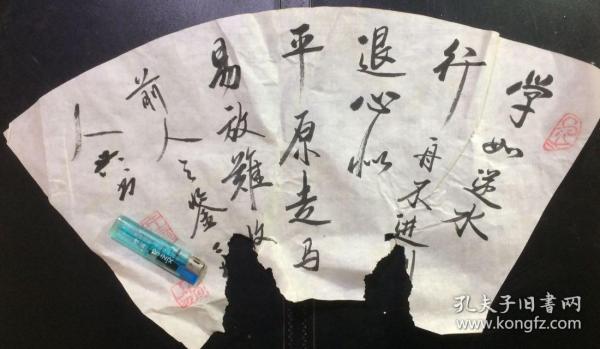 学如逆水
行舟不进则
退心似
平原走马
易放難收
前人之鉴
人
孔夫子旧书网
www.kongfz.com